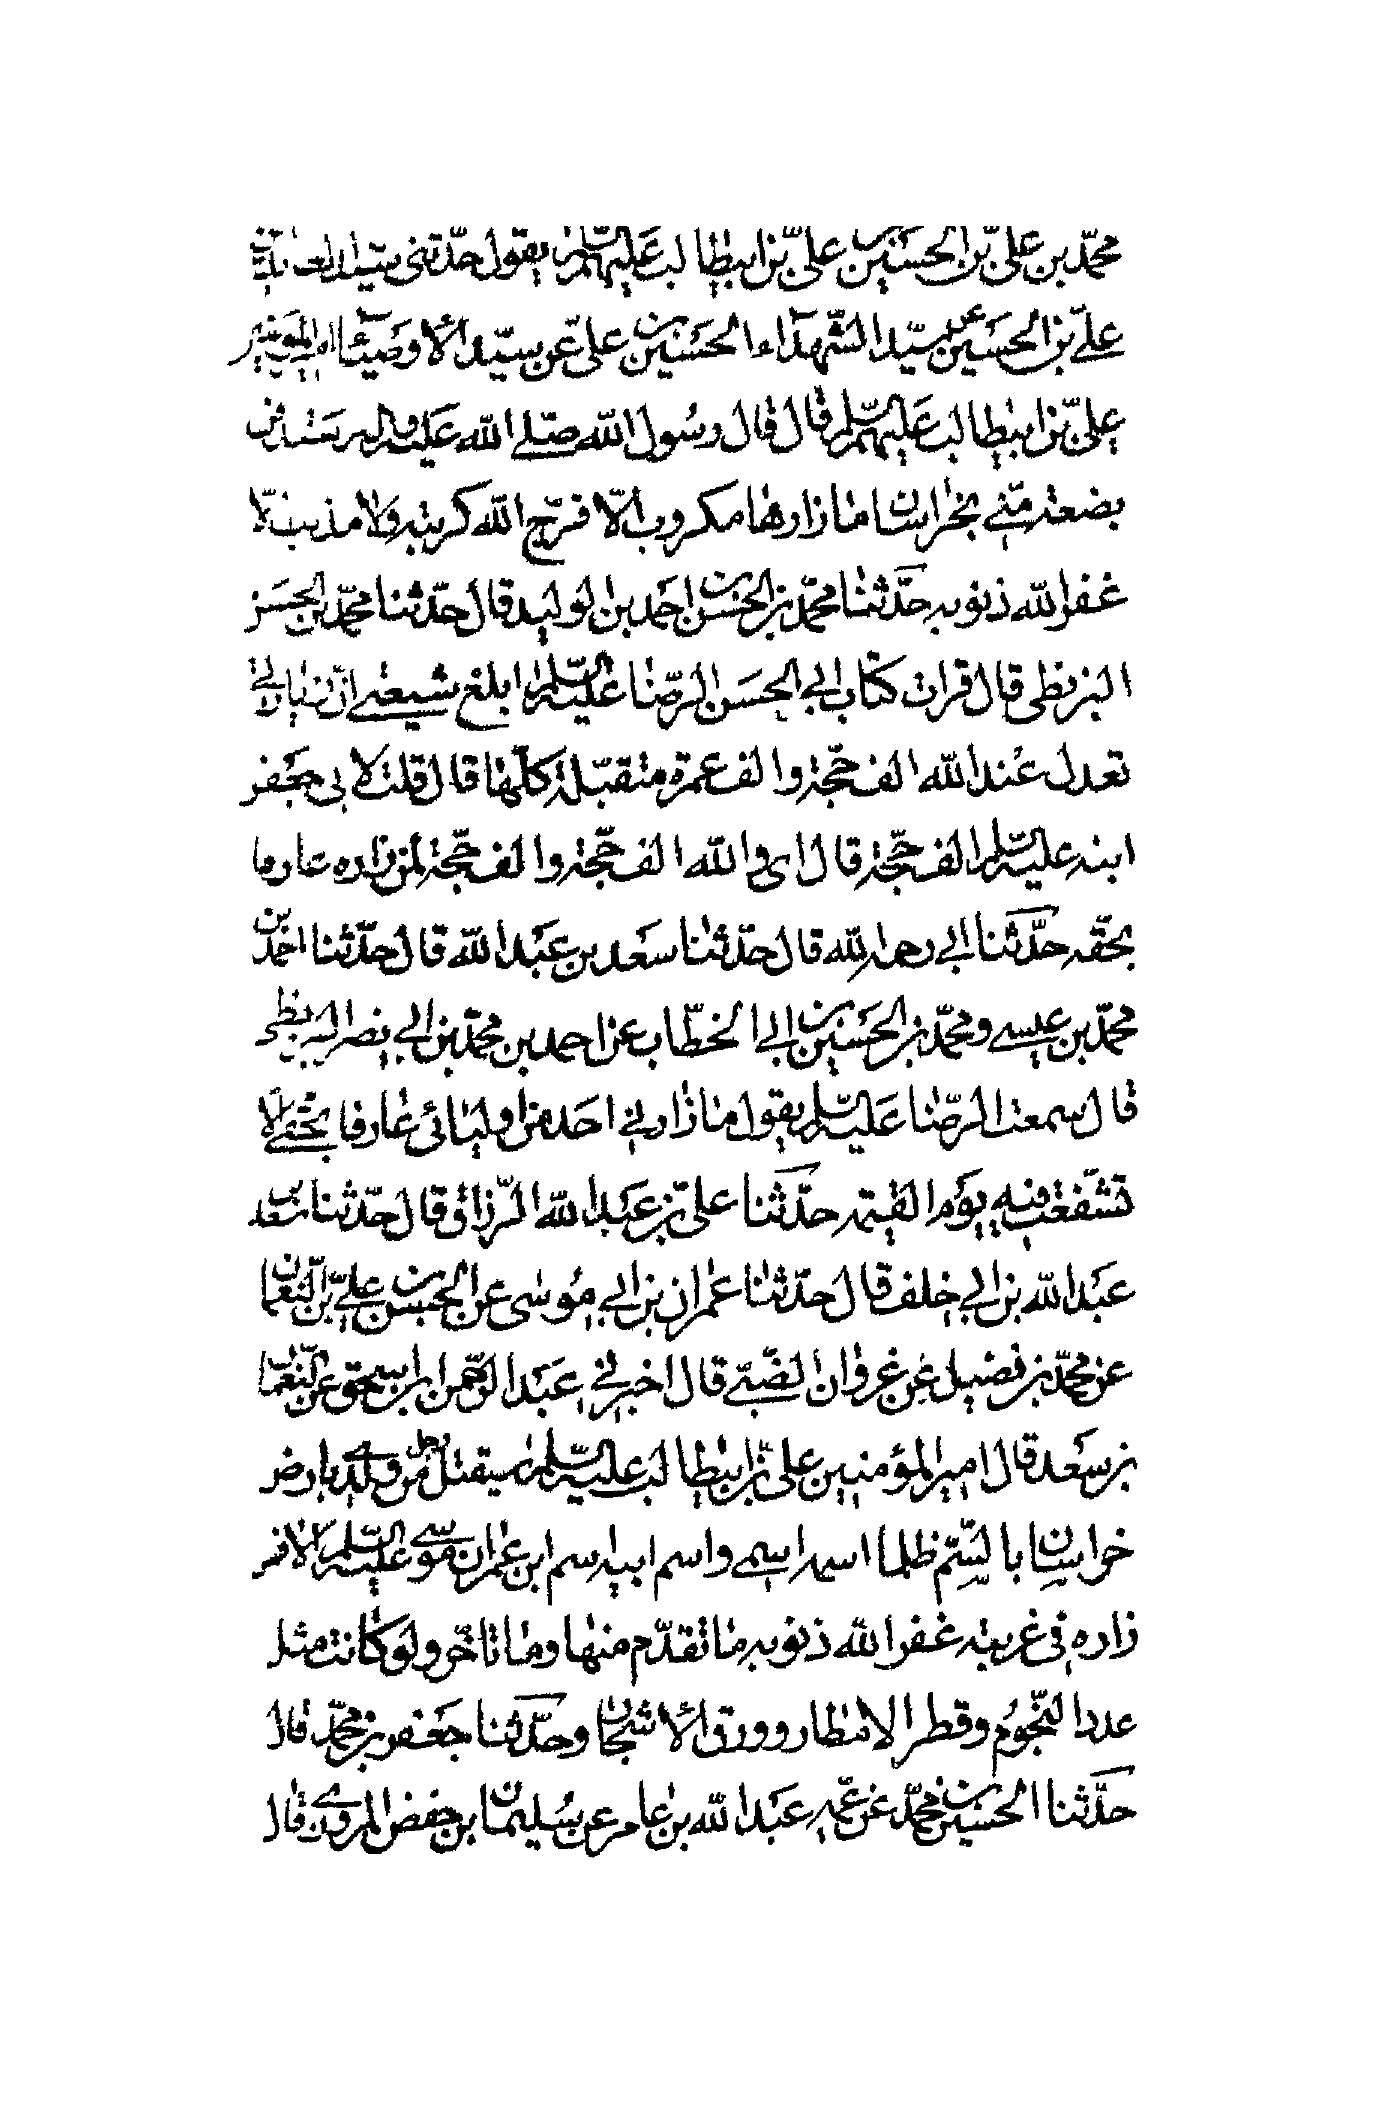 محمّد بن علیّ بن الحسین بن علیّ بن ابیطالب علیهم السّلم یقول حدّثنی سیّد العابدین
علیّ بن الحسین عن سیّد الشّهدآء الحسین بن علیّ عن سیّد الأوصیآء امیر المؤمنین
علیّ بن ابیطالب علیهم السّلم قال قال رسول اللّه صلّی اللّه علیه واله ستدفن
بضعة منّی بخراسان ما زارها مکروب الّا فرّج اللّه کربته ولا مذنب الّا
غفر اللّه ذنوبه حدّثنا محمّد بن الحسن بن احمد بن الولید قال حدّثنا محمّد بن الحسن
البزنطی قال قرات کتاب ابی الحسن الرّضا علیه السّلم ابلغ شیعتی انّ زیارتی
تعدل عند اللّه الف حجّة والف عمرة متقبّلة کلّها قال قلت لابی جعفر
ابنه علیه السّلم الف حجّة قال ای واللّه الف حجّة والف حجّة لمن زاره عارفا
بحقّه حدّثنا ابی رحمه اللّه قال حدّثنا سعد بن عبد اللّه قال حدّثنا احمد بن
محمّد بن عیسی ومحمّد بن الحسین بن ابی الخطّاب عن احمد بن محمّد بن ابی نصر البزنطی
قال سمعت الرّضا علیه السّلم یقول ما زارنی احد من اولیائی عارفا بحقّی الّا
تشفّعت فیه یوم القیٰمة حدّثنا علیّ بن عبد اللّه الرّزاق قال حدّثنا سعد بن
عبد اللّه بن ابی خلف قال حدّثنا عمران بن ابی موسٰی عن الحسن بن علیّ بن النّعمان
عن محمّد بن فضیل عن غزوان الضّبّی قال اخبرنی عبد الرّحمن ابن اسحق عن النّعمان
بن سعد قال امیر المؤمنین علیّ بن ابیطالب علیه السّلم سیقتل رجل من ولدی بارض
خراسان بالسّمّ ظلما اسمه اسمی واسم ابیه اسم ابن عمران موسی علیه السّلم الا فمن
زاره فی غربته غفر اللّه ذنوبه ما تقدّم منها وما تاخّر ولو کانت مثل
عدد النّجوم وقطر الامطار وورق الأشجار وحدّثنا جعفر بن محمّد قال
حدّثنا الحسین بن محمّد عن عمّه عبد اللّه بن عامر عن سلیمان بن حفص المروزی قال